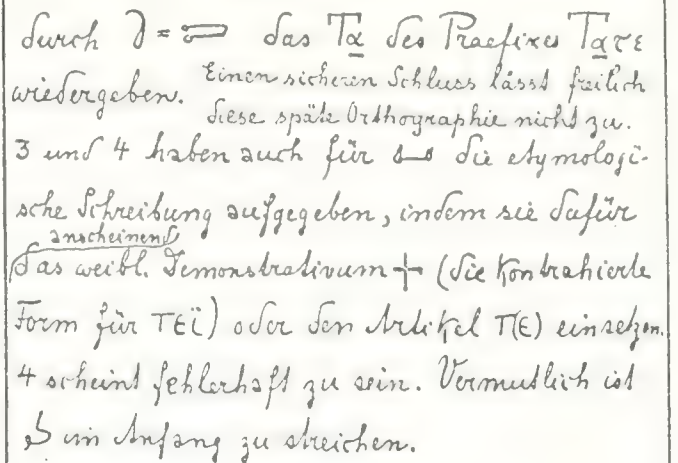 durch 𓂧 = 𓂞 das Ⲧⲁ des Praefixes Ⲧⲁⲣⲉ
wiedergeben. Einen sicheren Schluss lässt freilich
diese späte Orthographie nicht zu.
3 und 4 haben auch für 𓂞 die etymologi-
sche Schreibung aufgegeben, indem sie dafür
anscheinend
das weibl. Demonstrativum ϯ (die kontrahierte
Form für ⲧⲉⲓ̈) oder den Artikel ⲧ(ⲉ) einsetzen.
4 scheint fehlerhaft zu sein. Vermutlich ist
im Anfang zu streichen.